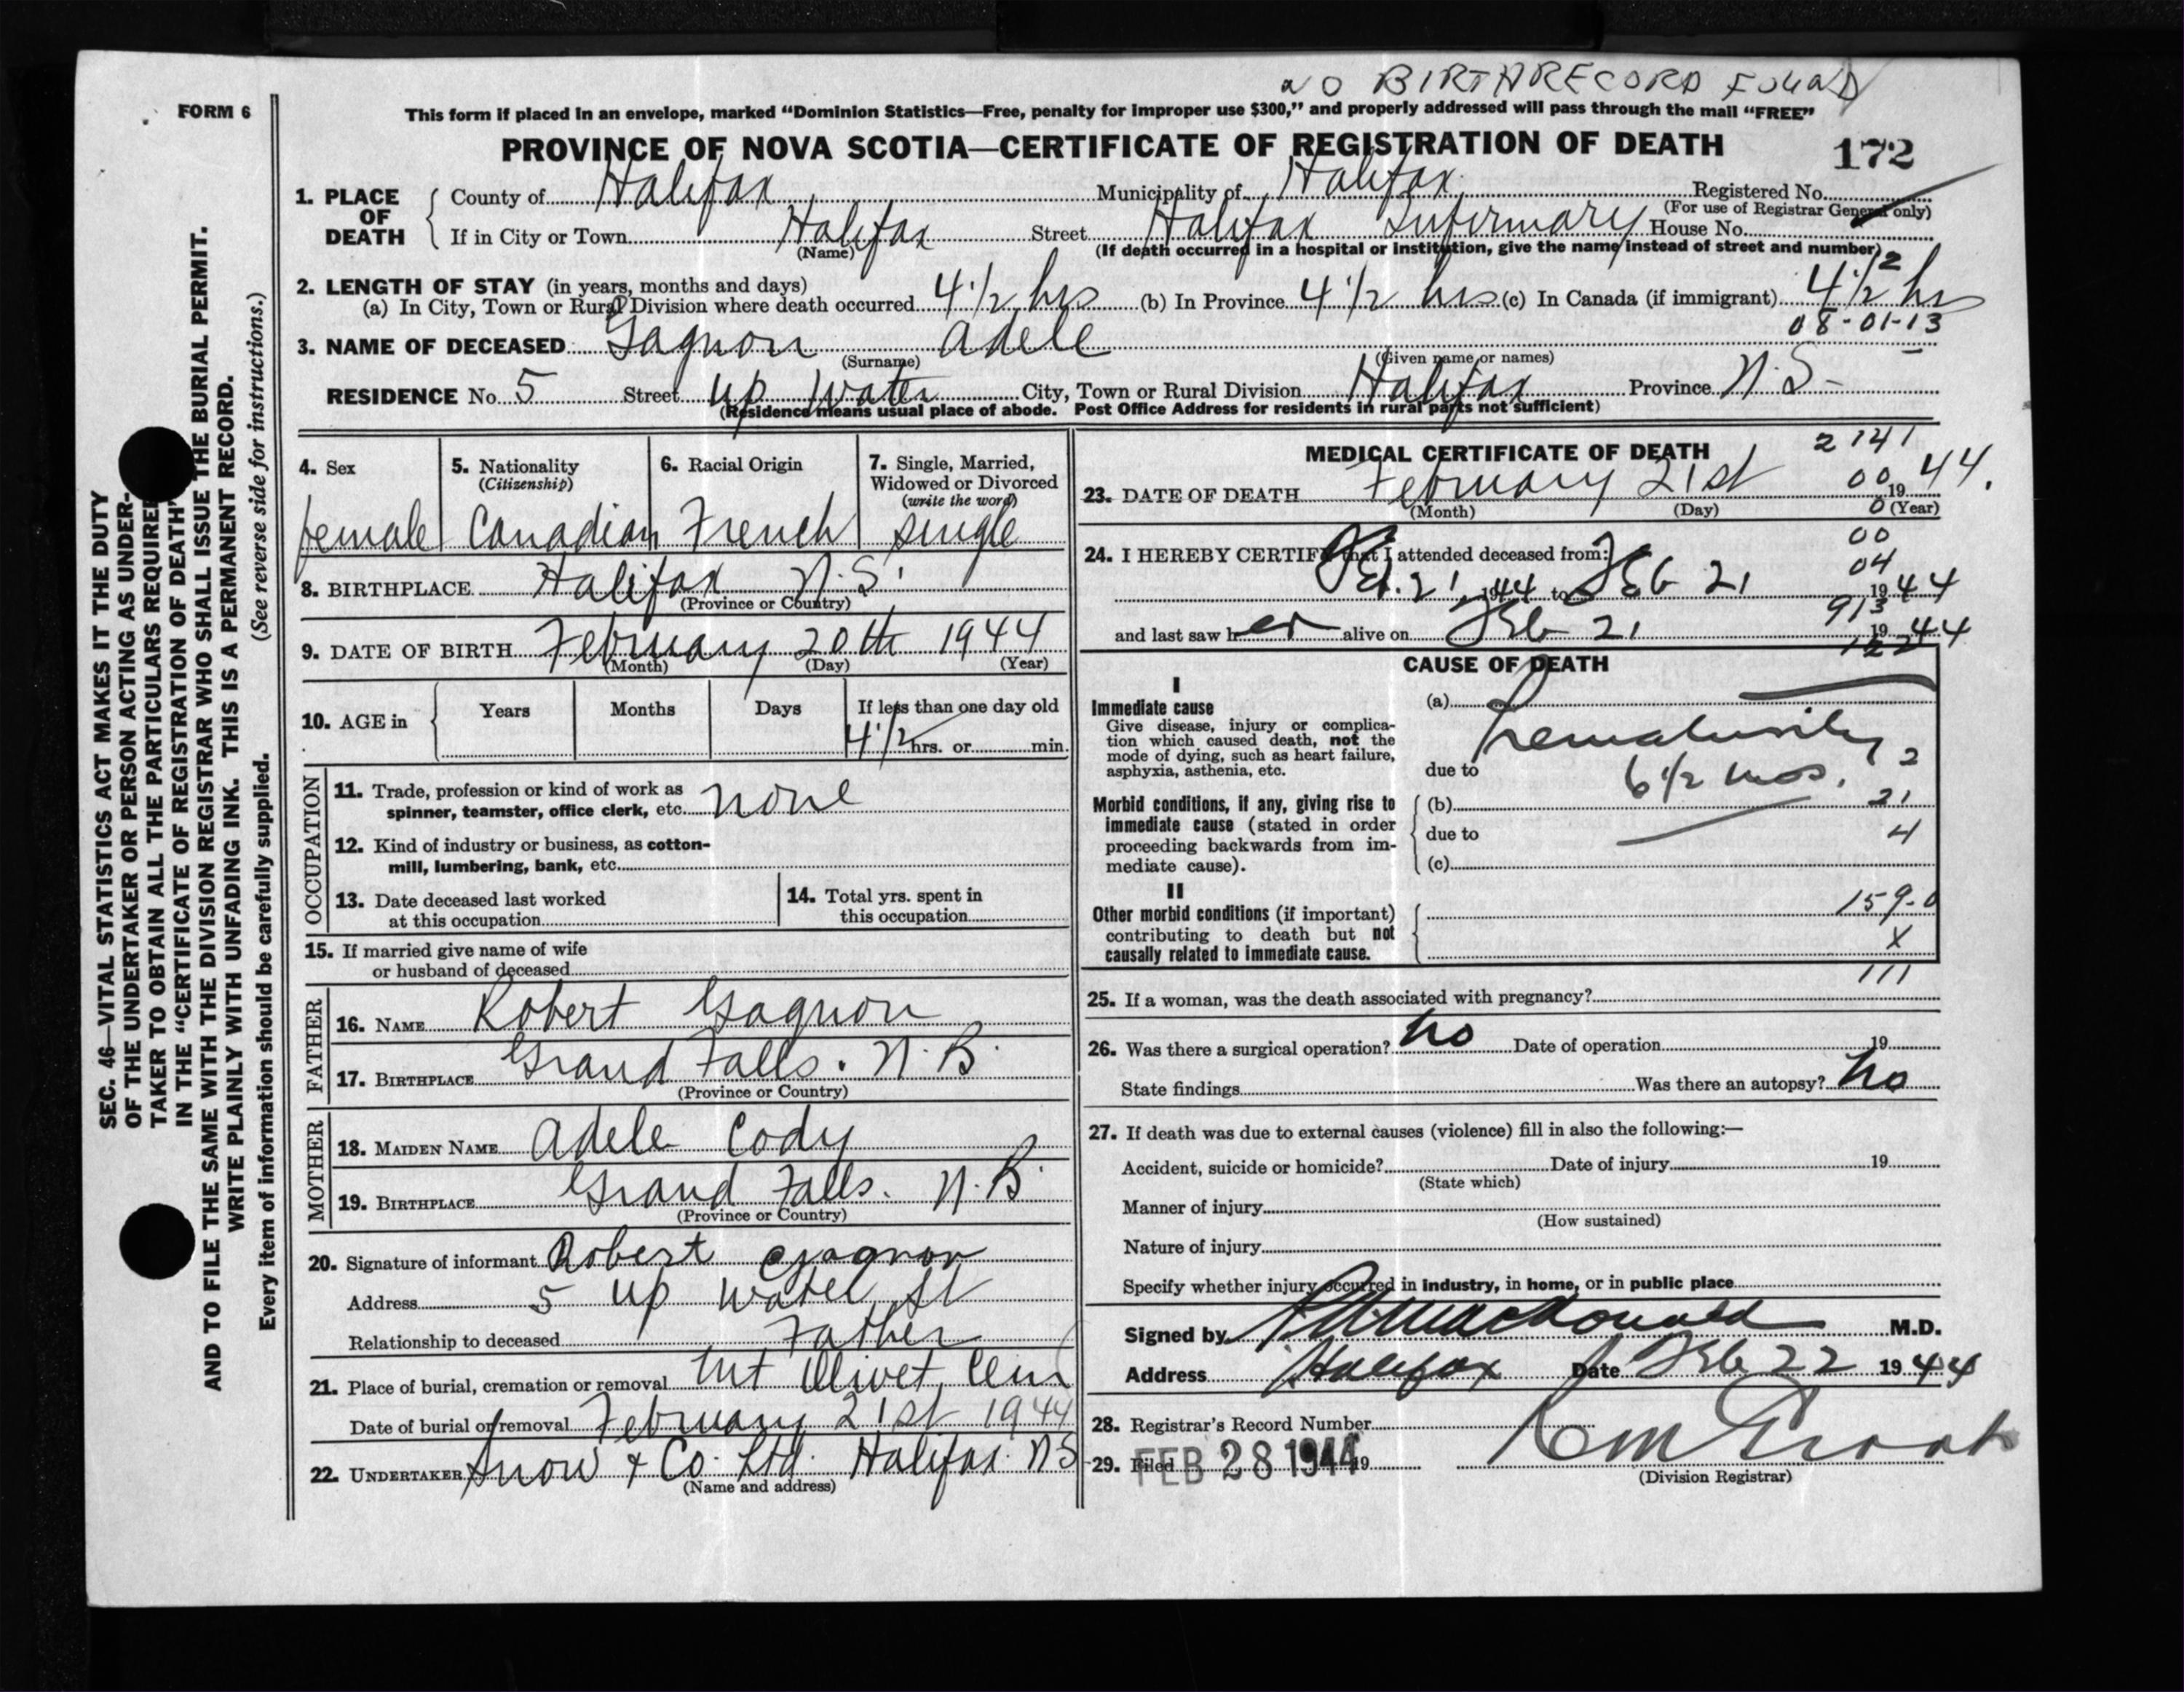 NO BIRTH RECORD FOUND
FORM 6
This form if placed in an envelope, marked "Dominion Statistics—Free, penalty for improper use $300," and properly addressed will pass through the mail "FREE"
PROVINCE OF NOVA SCOTIA—CERTIFICATE OF REGISTRATION OF DEATH
172
1. PLACE OF DEATH
County of Halifax Municipality of Halifax Registered No.
(For use of Registrar General only)
If in City or Town Halifax Street Halifax Infirmary House No.
(Name) (If death occurred in a hospital or institution, give the name instead of street and number)
2. LENGTH OF STAY (in years, months and days)
(a) In City, Town or Rural Division where death occurred 4 1/2 hrs (b) In Province 4 1/2 hrs (c) In Canada (if immigrant) 4 1/2 hrs
2
08-01-13
3. NAME OF DECEASED Gagnon Adele
(Surname) (Given name or names)
RESIDENCE No. 5 Street Up Water City, Town or Rural Division Halifax Province N.S-
(Residence means usual place of abode. Post Office Address for residents in rural parts not sufficient)
4. Sex
female
5. Nationality
(Citizenship)
Canadian
6. Racial Origin
French
7. Single, Married,
Widowed or Divorced
(write the word)
single
8. BIRTHPLACE Halifax N.S.
(Province or Country)
9. DATE OF BIRTH February 20th 1944
(Month) (Day) (Year)
10. AGE in Years Months Days If less than one day old
4 1/2 hrs. or min.
OCCUPATION
11. Trade, profession or kind of work as
spinner, teamster, office clerk, etc. none
12. Kind of industry or business, as cotton-
mill, lumbering, bank, etc.
13. Date deceased last worked
at this occupation
14. Total yrs. spent in
this occupation
15. If married give name of wife
or husband of deceased
FATHER
16. NAME Robert Gagnon
17. BIRTHPLACE Grand Falls. N.B.
(Province or Country)
MOTHER
18. MAIDEN NAME Adele Cody
19. BIRTHPLACE Grand Falls. N.B.
(Province or Country)
20. Signature of informant Robert Gagnon
Address 5 up water St
Relationship to deceased Father
21. Place of burial, cremation or removal Mt Olivet Cem
Date of burial or removal February 21st 1944
22. UNDERTAKER Snow & Co. Ltd. Halifax NS
(Name and address)
MEDICAL CERTIFICATE OF DEATH
2141
23. DATE OF DEATH February 21st 1944.
(Month) (Day) (Year)
00
0
00
04
24. I HEREBY CERTIFY that I attended deceased from:
Feb. 21, 1944 to Feb 21 1944
913
and last saw her alive on Feb 21 1944
CAUSE OF DEATH
I
Immediate cause
Give disease, injury or complica-
tion which caused death, not the
mode of dying, such as heart failure,
asphyxia, asthenia, etc.
(a) Prematurity
due to 6 1/2 mos.
2
Morbid conditions, if any, giving rise to
immediate cause (stated in order
proceeding backwards from im-
mediate cause).
(b)
21
due to
4
(c)
II
Other morbid conditions (if important)
contributing to death but not
causally related to immediate cause.
159-0
X
111
25. If a woman, was the death associated with pregnancy?
26. Was there a surgical operation? no Date of operation 19
State findings Was there an autopsy? no
27. If death was due to external causes (violence) fill in also the following:—
Accident, suicide or homicide? Date of injury 19
(State which)
Manner of injury
(How sustained)
Nature of injury
Specify whether injury occurred in industry, in home, or in public place
Signed by MacDonald M.D.
Address Halifax Date Feb 22 1944
28. Registrar's Record Number
29. Filed FEB 28 1944 19
(Division Registrar)
SEC. 46—VITAL STATISTICS ACT MAKES IT THE DUTY
OF THE UNDERTAKER OR PERSON ACTING AS UNDER-
TAKER TO OBTAIN ALL THE PARTICULARS REQUIRED
IN THE "CERTIFICATE OF REGISTRATION OF DEATH"
AND TO FILE THE SAME WITH THE DIVISION REGISTRAR WHO SHALL ISSUE THE BURIAL PERMIT.
WRITE PLAINLY WITH UNFADING INK. THIS IS A PERMANENT RECORD.
Every item of information should be carefully supplied. (See reverse side for instructions.)